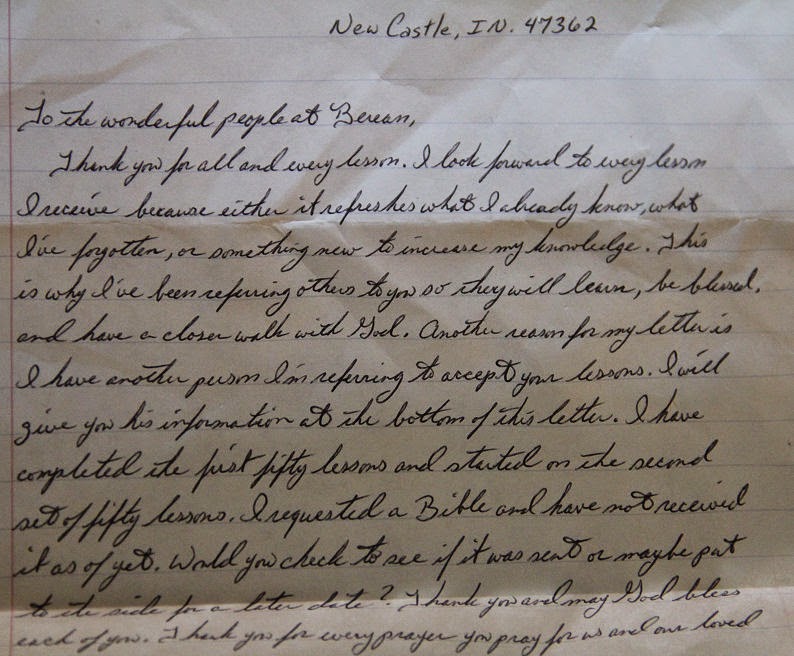 New Castle, IN. 47362
To the wonderful people at Berean,
Thank you for all and every lesson. I look forward to every lesson
I receive because either it refreshes what I already know, what
I've forgotten, or something new to increase my knowledge. This
is why I've been referring others to you so they will learn, be blessed.
and have a closer walk with God. Another reason for my letter is
I have another person I'm referring to accept your lessons. I will
give you his information at the bottom of this letter. I have
completed the first fifty lessons and started on the second
set of fifty lessons. I requested a Bible and have not received
it as of yet. Would you check to see if it was sent or maybe put
to the side for a later date? Thank you and may God bless
each of you. Thank you for every prayer you pray for us and our loved